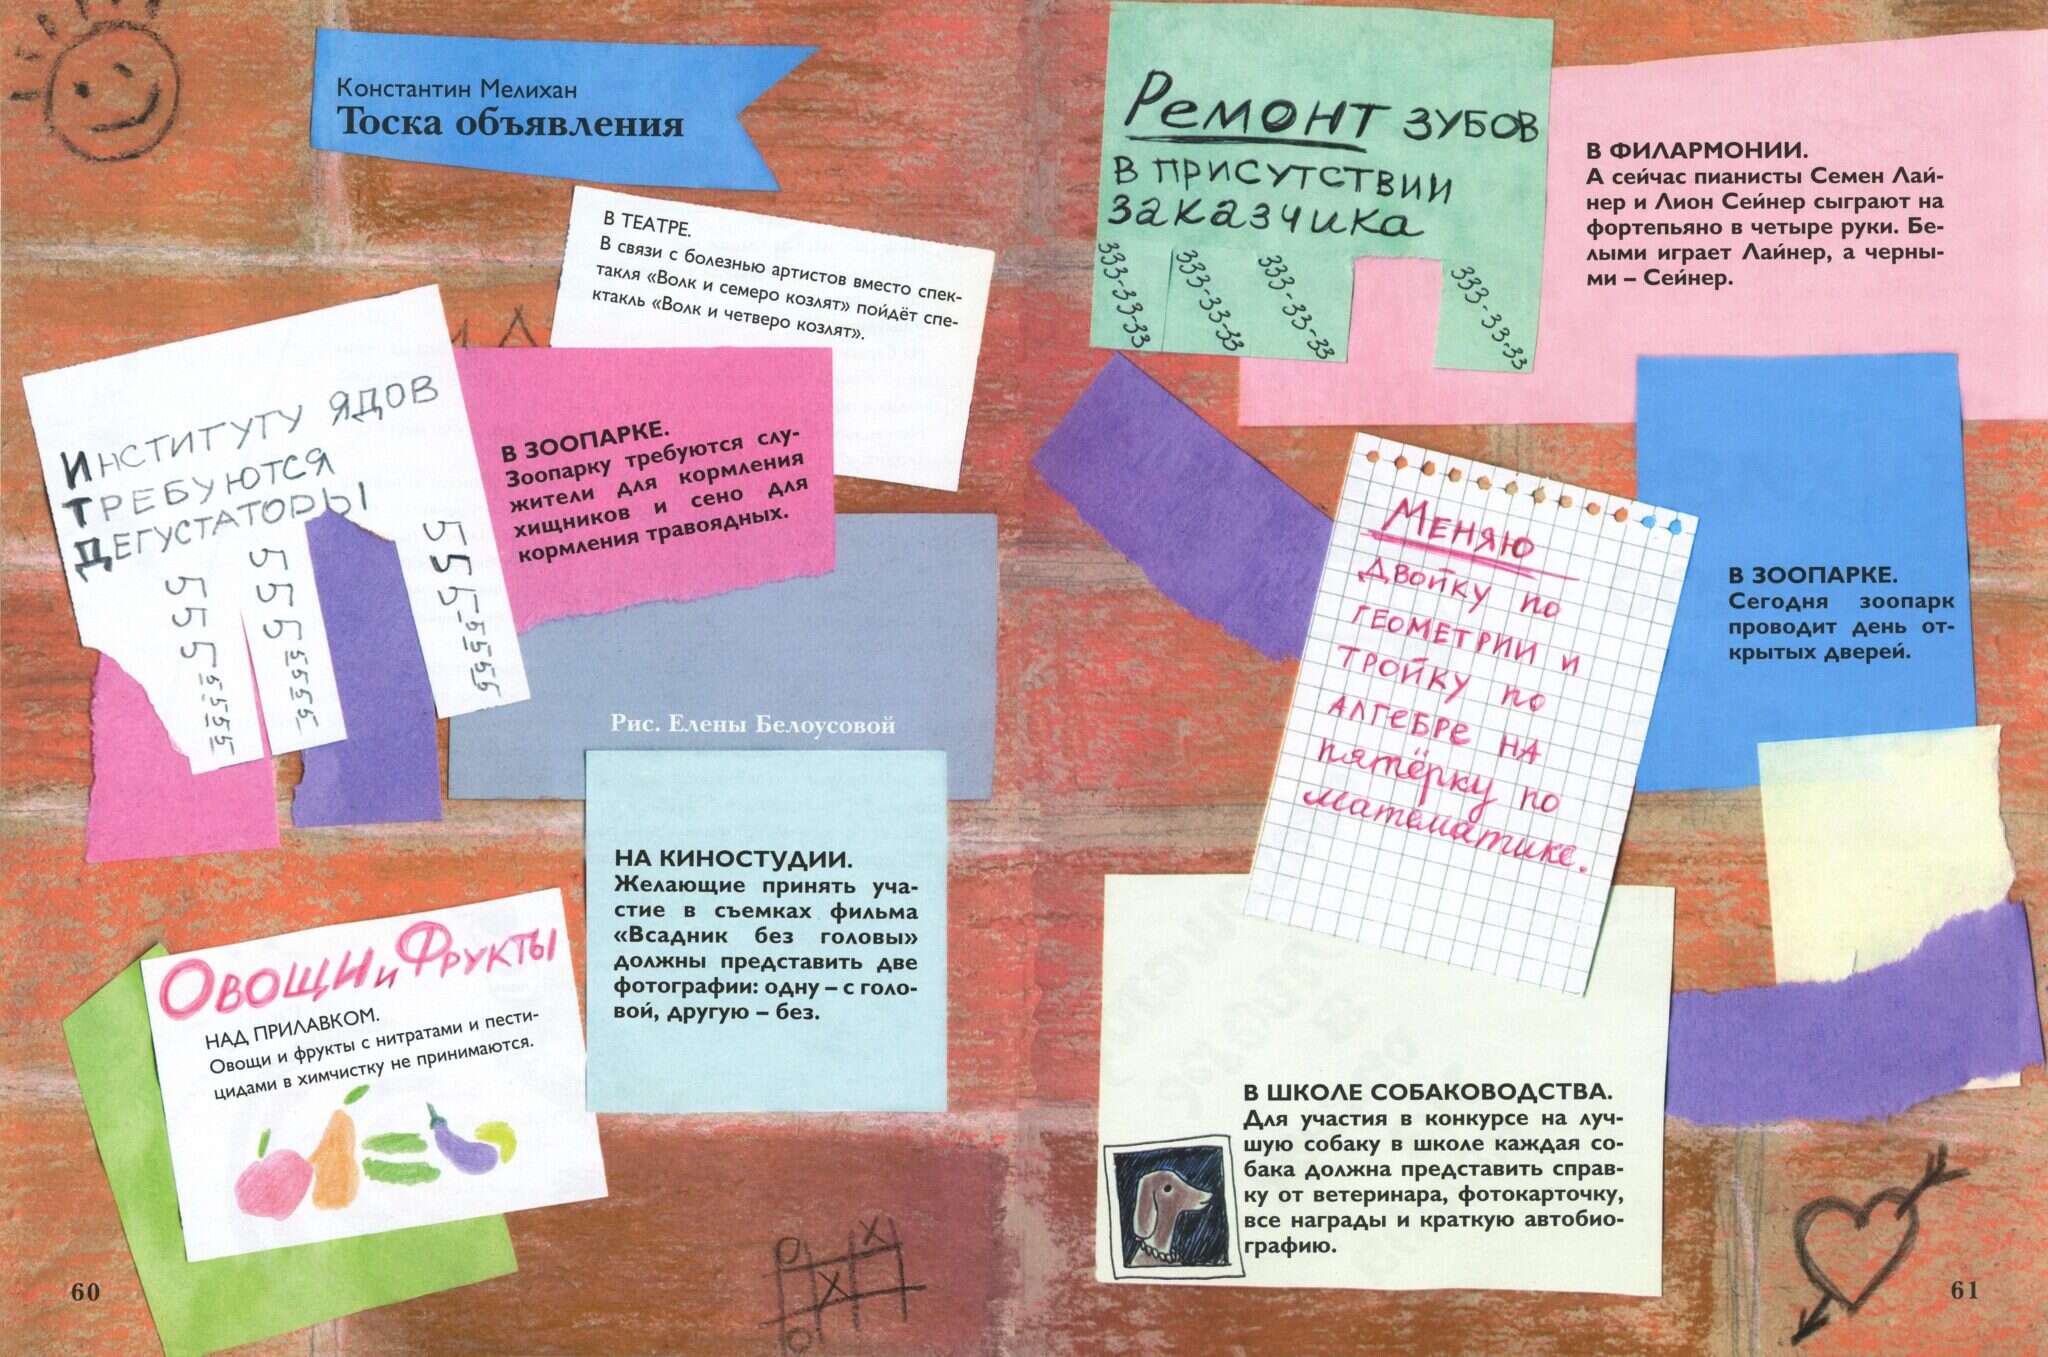 Константин Мелихан
Тоска объявления
В ТЕАТРЕ.
В связи с болезнью артистов вместо спек-
такля «Волк и семеро козлят» пойдёт спе-
ктакль «Волк и четверо козлят».
Институту ядов
требуются
дегустаторы
555-55-55
555-55-55
555-55-55
В ЗООПАРКЕ.
Зоопарку требуются слу-
жители для кормления
хищников и сено для
кормления травоядных.
Рис. Елены Белоусовой
НА КИНОСТУДИИ.
Желающие принять уча-
стие в съемках фильма
«Всадник без головы»
должны представить две
фотографии: одну – с голо-
вой, другую – без.
Овощи и Фрукты
НАД ПРИЛАВКОМ.
Овощи и фрукты с нитратами и пести-
цидами в химчистку не принимаются.
60
Ремонт зубов
в присутствии
заказчика
333-33-33
333-33-33
333-33-33
333-33-33
В ФИЛАРМОНИИ.
А сейчас пианисты Семен Лай-
нер и Лион Сейнер сыграют на
фортепьяно в четыре руки. Бе-
лыми играет Лайнер, а черны-
ми – Сейнер.
Меняю
двойку по
геометрии и
тройку по
алгебре на
пятёрку по
математике.
В ЗООПАРКЕ.
Сегодня зоопарк
проводит день от-
крытых дверей.
В ШКОЛЕ СОБАКОВОДСТВА.
Для участия в конкурсе на луч-
шую собаку в школе каждая со-
бака должна представить справ-
ку от ветеринара, фотокарточку,
все награды и краткую автобио-
графию.
61